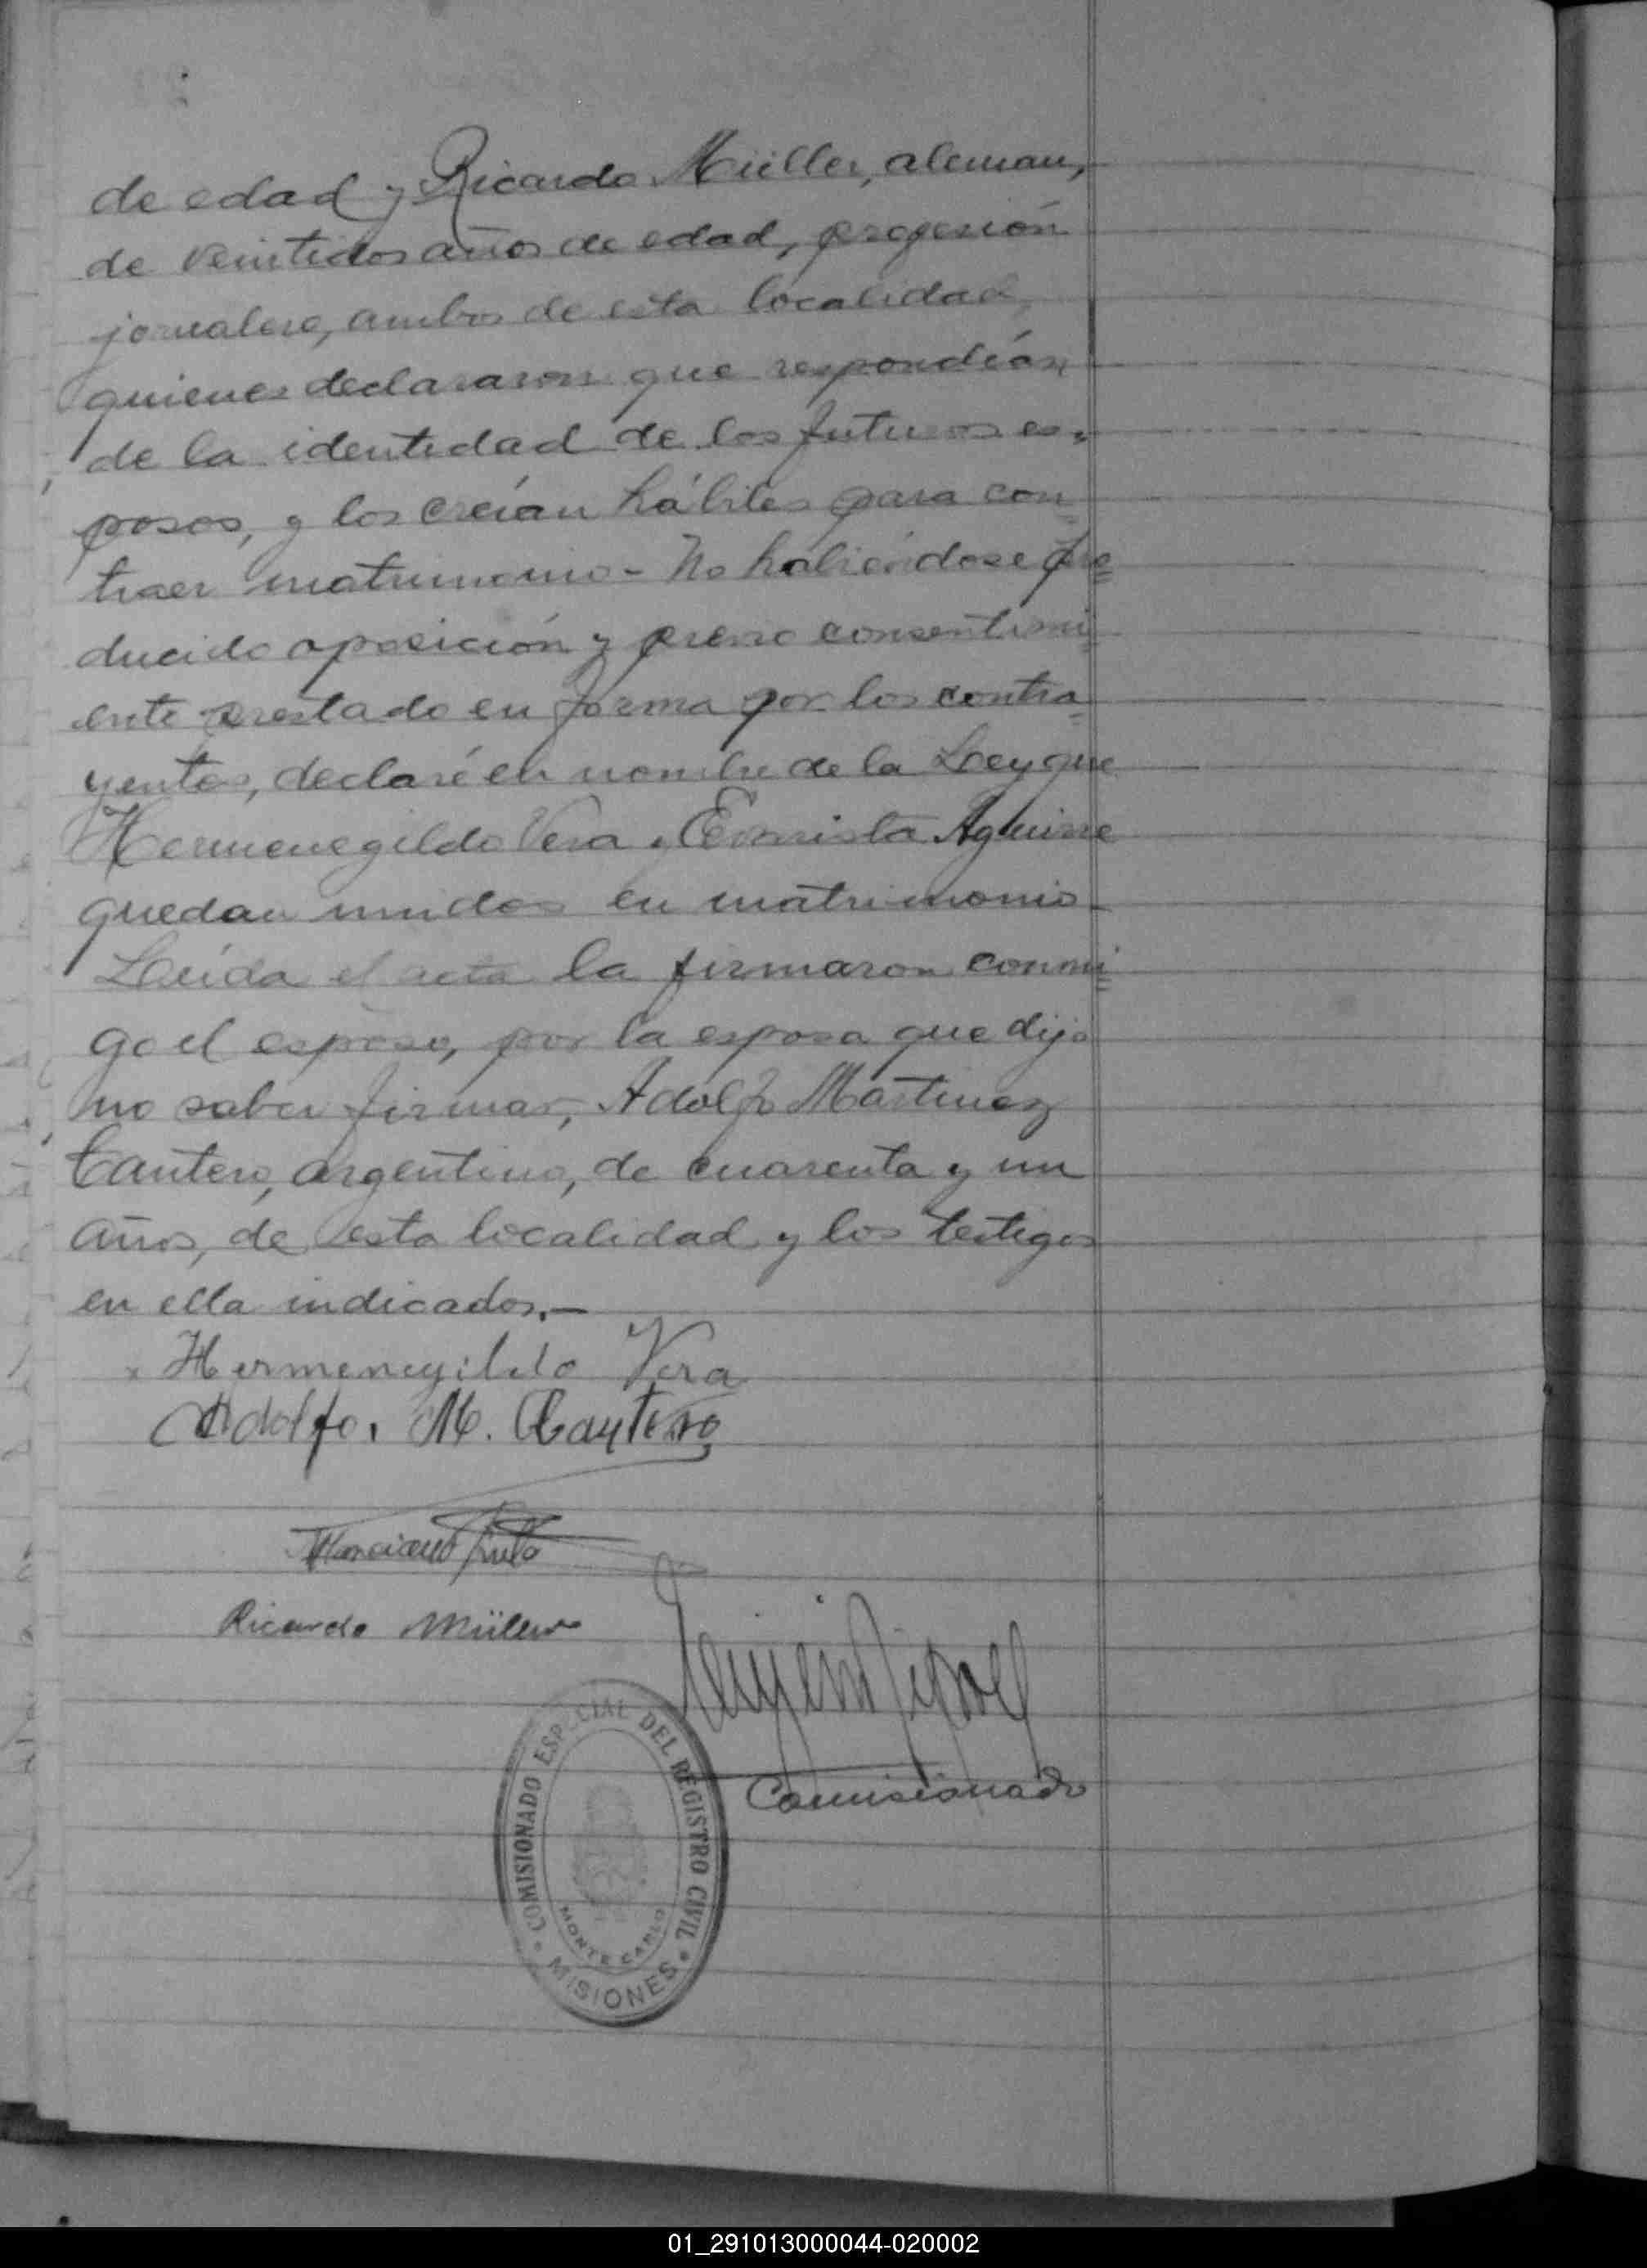 de edad y Ricardo Müller, aleman,
de veintidos años de edad, profesión
jornalero, ambos de esta localidad,
quienes declararon que respondían
de la identidad de los futuros es-
posos, y los creían hábiles para con
traer matrimonio - No habiéndose pro
ducido oposición y previo consentimi
ento prestado en forma por los contra
yentes, declaré en nombre de la Ley que
Hermenegildo Vera y Evarista Aguirre
quedan unidos en matrimonio -
Leída el acta la firmaron conmi
go el esposo, por la esposa que dijo
no saber firmar, Adolfo Martinez
Cantero, argentino, de cuarenta y un
años, de esta localidad y los testigos
en ella indicados.-
x Hermenegildo Vera
Adolfo. M. Cantero
Marciano
Ricardo Müller
Comisionado
COMISIONADO ESPECIAL DEL REGISTRO CIVIL
MONTE CARLO
MISIONES
01_291013000044-020002